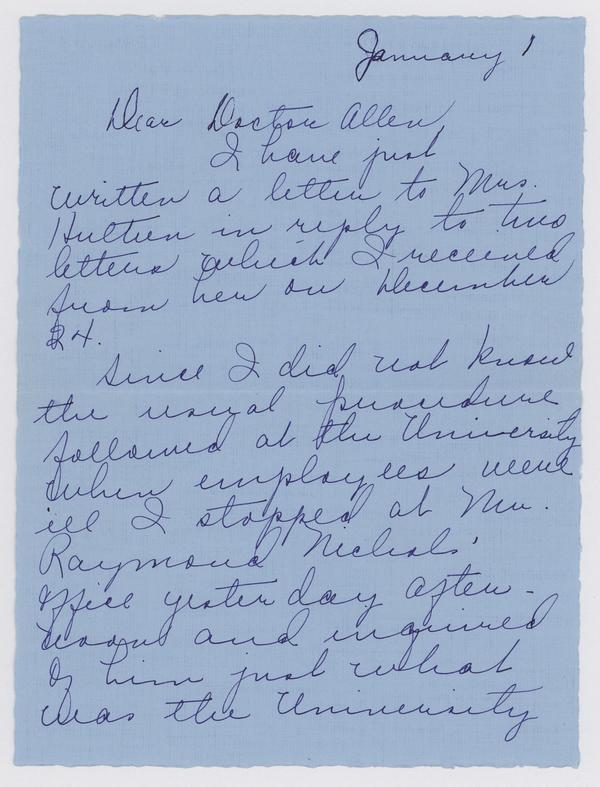 January 1
Dear Doctor Allen,
I have just
written a letter to Mrs.
Hultien in reply to two
letters which I received
from her on December
24.
Since I did not know
the usual procedure
followed at the University
when employees were
ill I stopped at Mr.
Raymond Nichols'
office yesterday after-
noon and inquired
of him just what
was the University